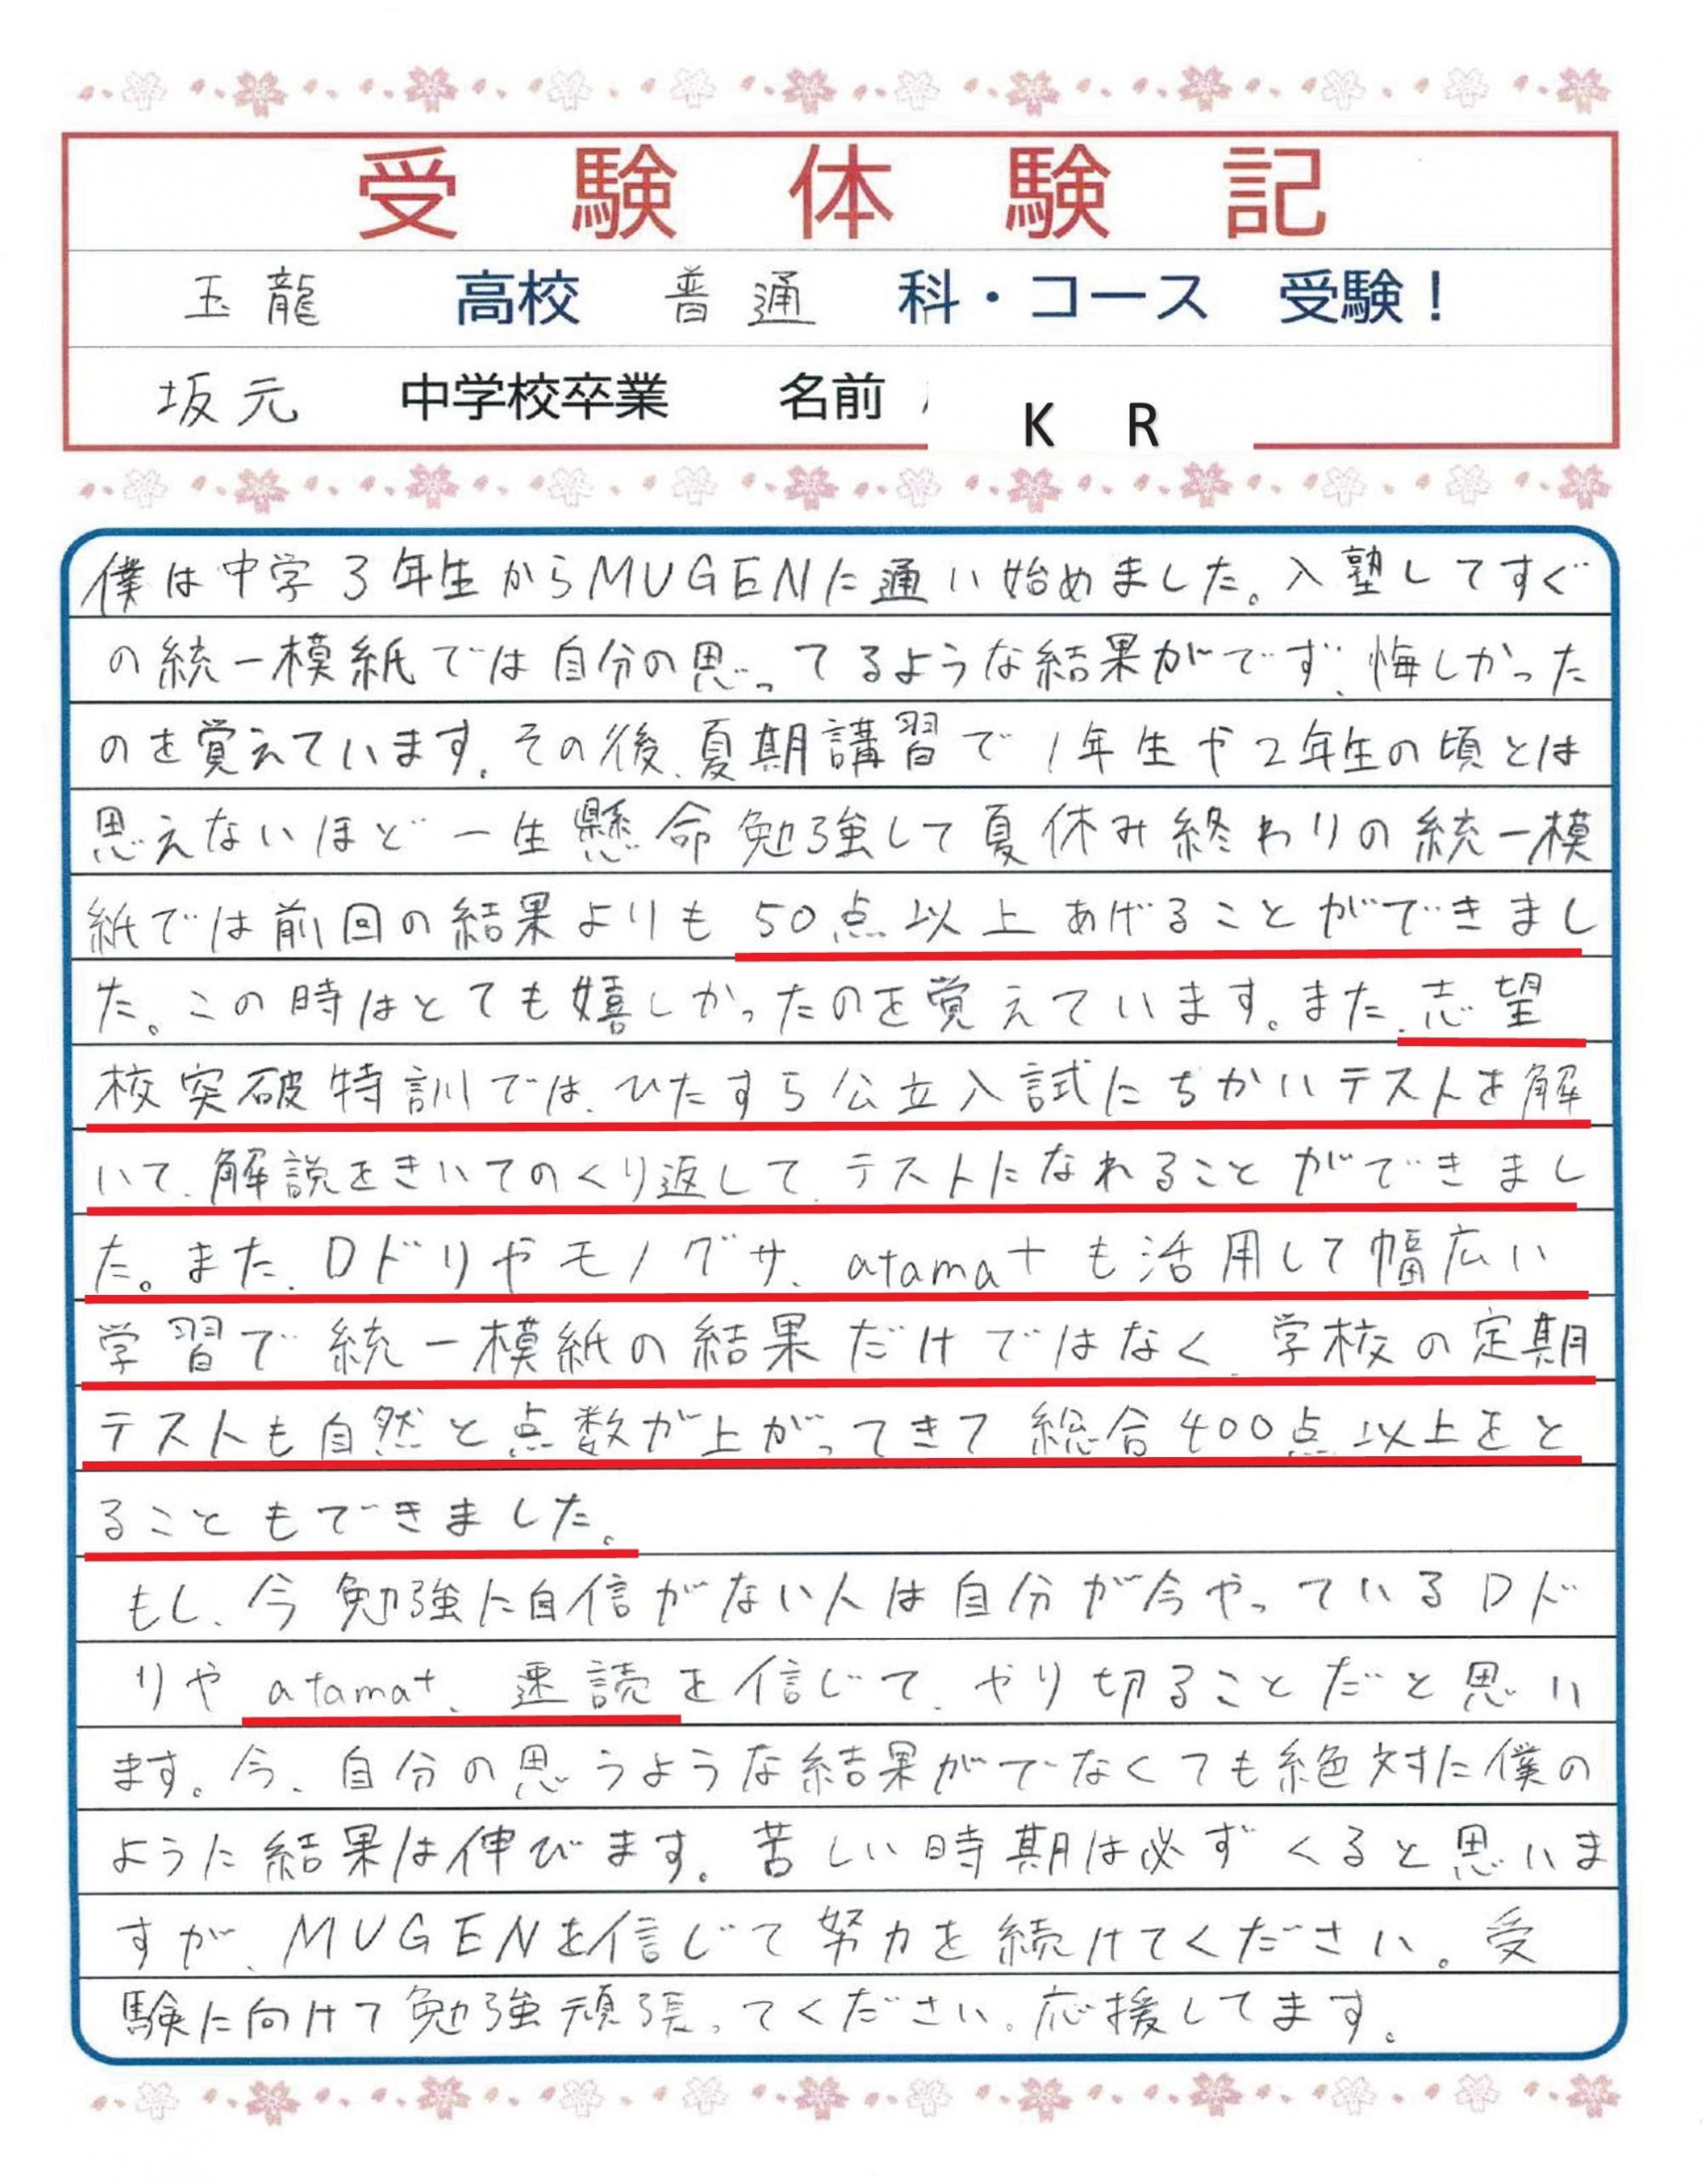 受験体験記
玉龍 高校 普通 科・コース 受験！
坂元 中学校卒業 名前
K R
僕は中学3年生からMUGENに通い始めました。入塾してすぐ
の統一模紙では自分の思ってるような結果がでず、悔しかった
のを覚えています。その後、夏期講習で1年生や2年生の頃とは
思えないほど一生懸命勉強して夏休み終わりの統一模
紙では前回の結果よりも50点以上あげることができまし
た。この時はとても嬉しかったのを覚えています。また、志望
校突破特訓では、ひたすら公立入試にちかいテストを解
いて、解説をきいてのくり返しで、テストになれることができまし
た。また、Dドリやモノグサ、atama+も活用して幅広い
学習で統一模紙の結果だけではなく、学校の定期
テストも自然と点数が上がってきて総合400点以上をと
ることもできました。
もし、今勉強に自信がない人は自分が今やっているDド
リやatama+、速読を信じて、やり切ることだと思い
ます。今、自分の思うような結果がでなくても絶対に僕の
ように結果は伸びます。苦しい時期は必ずくると思いま
すが、MUGENを信じて努力を続けてください。受
験に向けて勉強頑張ってください。応援してます。